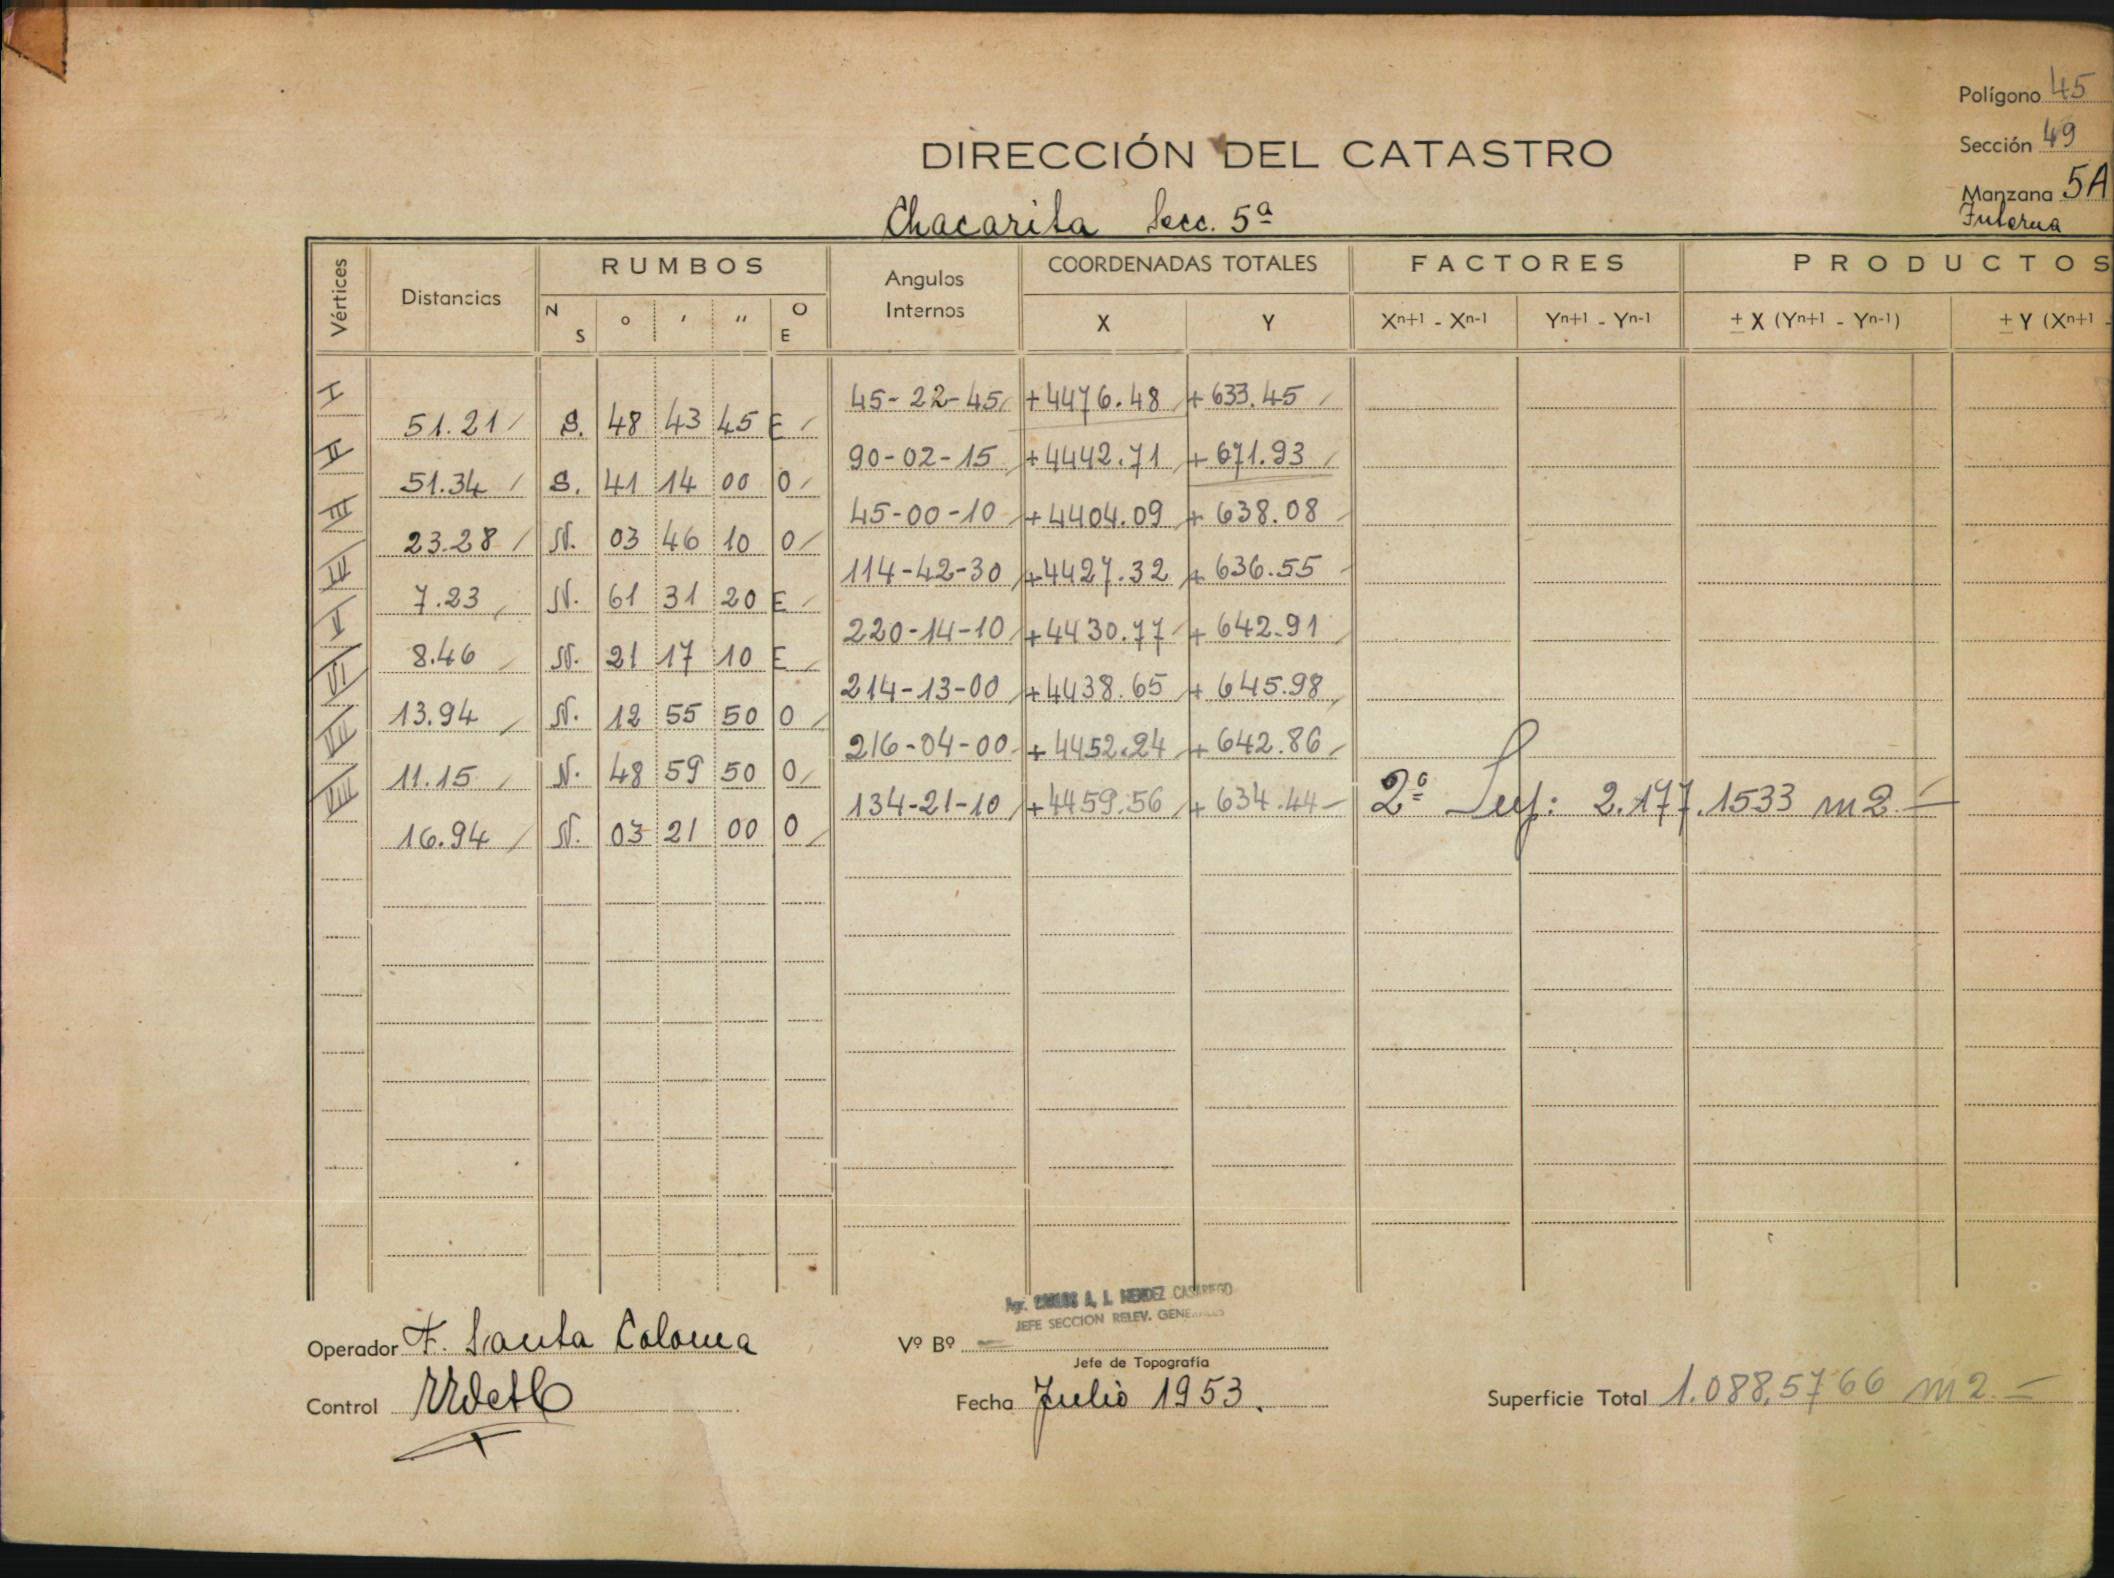 Polígono 45
DIRECCIÓN DEL CATASTRO
Sección 49
Manzana 5A
Interna
Chacarita Secc. 5ª
Vértices Distancias RUMBOS Angulos Internos COORDENADAS TOTALES FACTORES PRODUCTOS
N S ° ′ ″ O E X Y Xn+1 - Xn-1 Yn+1 - Yn-1 ± X (Yn+1 - Yn-1) ± Y (Xn+1 -
I 45-22-45 +4476.48 +633.45
51.21 S. 48 43 45 E
II 90-02-15 +4442.71 +671.93
51.34 S. 41 14 00 O
III 45-00-10 +4404.09 +638.08
23.28 N. 03 46 10 O
IV 114-42-30 +4427.32 +636.55
7.23 N. 61 31 20 E
V 220-14-10 +4430.77 +642.91
8.46 N. 21 17 10 E
VI 214-13-00 +4438.65 +645.98
13.94 N. 12 55 50 O
VII 216-04-00 +4452.24 +642.86
11.15 N. 48 59 50 O
VIII 134-21-10 +4459.56 +634.44 2º Sup: 2.177.1533 m2.—
16.94 N. 03 21 00 O
Agr. CARLOS A. L. MENDEZ CASARIEGO
JEFE SECCION RELEV. GENERALES
Operador F. Santa Coloma Vº Bº
Jefe de Topografía
Control Fecha Julio 1953. Superficie Total 1.088,5766 m2.—